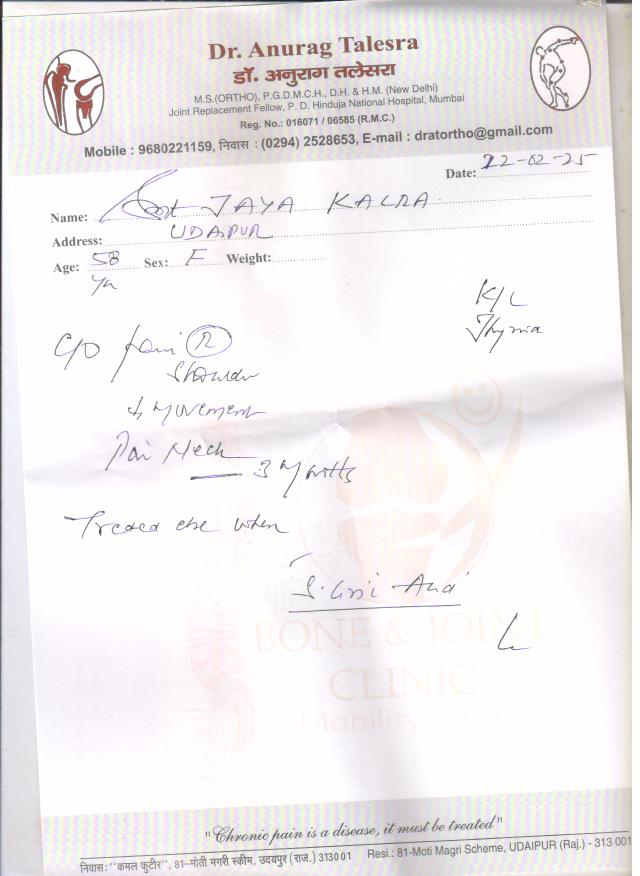 Dr. Anurag Talesra
डॉ. अनुराग तलेसरा
M.S.(ORTHO), P.G.D.M.C.H., D.H. & H.M. (New Delhi)
Joint Replacement Fellow, P. D. Hinduja National Hospital, Mumbai
Reg. No.: 016071 / 06585 (R.M.C.)
Mobile : 9680221159, निवास : (0294) 2528653, E-mail : dratortho@gmail.com
Date: 22-02-25
Name: JAYA KALRA
Address: UDAIPUR
Age: 58 Sex: F Weight:
Yr
K/C
C/O Pain (R)
Shoulder
movement
Pain Neck
3 Months
Treated else when
BONE & JOINT
CLINIC
Mobility
"Chronic pain is a disease, it must be treated"
निवास: "कमल कुटीर", 81-मोती मगरी स्कीम, उदयपुर (राज.) 313001 Resi.: 81-Moti Magri Scheme, UDAIPUR (Raj.) - 313 001